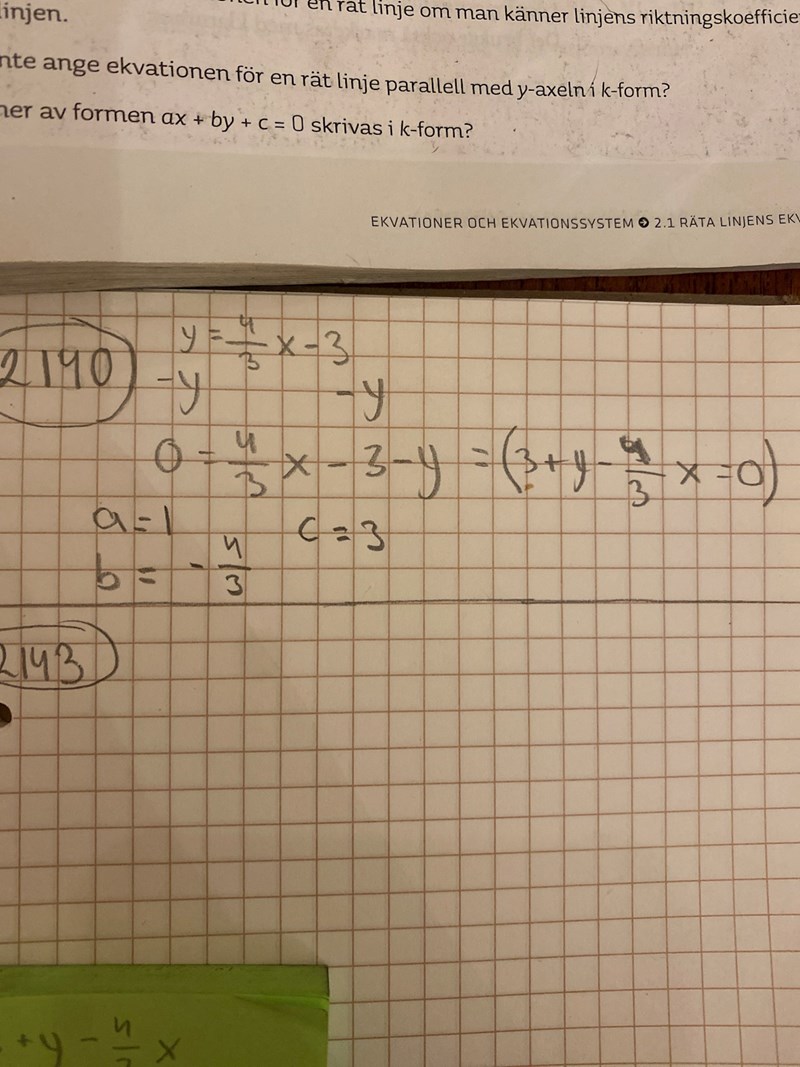 injen.
för en rät linje om man känner linjens riktningskoefficie
nte ange ekvationen för en rät linje parallell med y-axeln i k-form?
ner av formen ax + by + c = 0 skrivas i k-form?
EKVATIONER OCH EKVATIONSSYSTEM 2.1 RÄTA LINJENS EKV
2140 y = 4/3 x - 3
-y -y
0 = 4/3 x - 3 - y = (3 + y - 4/3 x = 0)
a = 1 c = 3
b = - 4/3
2143
+ y - 4/3 x